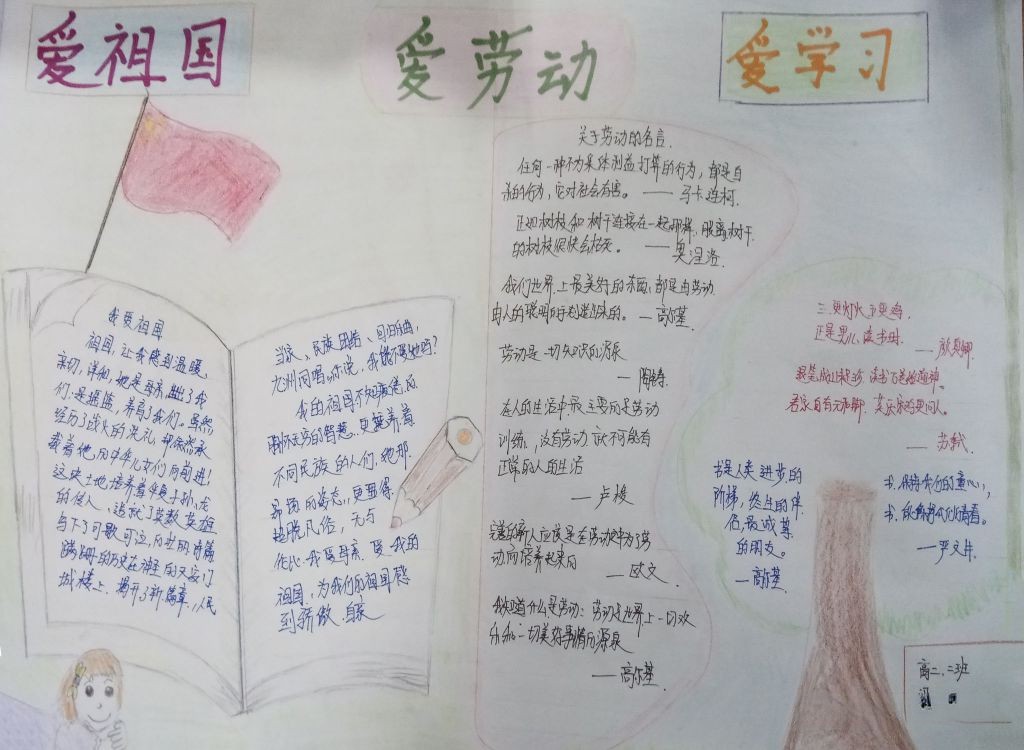 爱祖国
爱劳动
爱学习
我爱祖国
祖国,让我感到温暖,
亲切,详和,她是母亲,
们.是摇篮,养育了我们.虽然
经历了战火的洗礼,却依然承
载着他的中华儿女们向前进!
这块土地培养着华夏子孙,龙
的传人、造就了英数英雄
与下了可歌可泣,的壮丽诗篇
的历史在神圣的天安门
城楼上.揭开了新篇章,人民
当家、民族团结、
九州同唱.你说,我能不爱她吗?
我的祖国不知疲倦的
用怀无穷的智慧..更抚养着
不同民族的人们,她那
的姿态..更显得
超脱凡俗,无与
伦比.我爱母亲,爱我的
祖国,为我们的祖国感
到骄傲.自豪
关于劳动的名言.
任何一种不为集体利益打算的行为,都是自
杀的行为,它对社会有害。——马卡连柯.
正如树枝和树干连接在一起那样,脱离树干
的树枝很快会枯死。——奥涅格.
我们世界上最美好的东西,都是由劳动
由人的聪明的手创造出来的。——高尔基.
劳动是一切知识的源泉
——陶铸.
在人的生活中最主要的是劳动
训练;没有劳动就不可能有
正常的人的生活
——卢梭
完善的新人应该是在劳动之中为了劳
动而培养起来的——欧文.
我知道什么是劳动:劳动是世界上一切欢
乐和一切美好事情的源泉
——高尔基.
三更灯火五更鸡.
正是男儿读书时.
——颜真卿.
君家自有元和脚.莫厌家鸡更问人。
——苏轼
书是人类进步的
阶梯,终生的伴
侣,最诚挚
的朋友。
—高尔基
书.保持我们的童心;,
书.
—严文井.
高二.二班